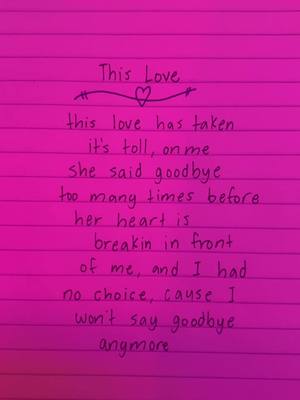 This Love
this love has taken
it's toll, on me
she said goodbye
too many times before
her heart is
breakin in front
of me, and I had
no choice, cause I
won't say goodbye
anymore